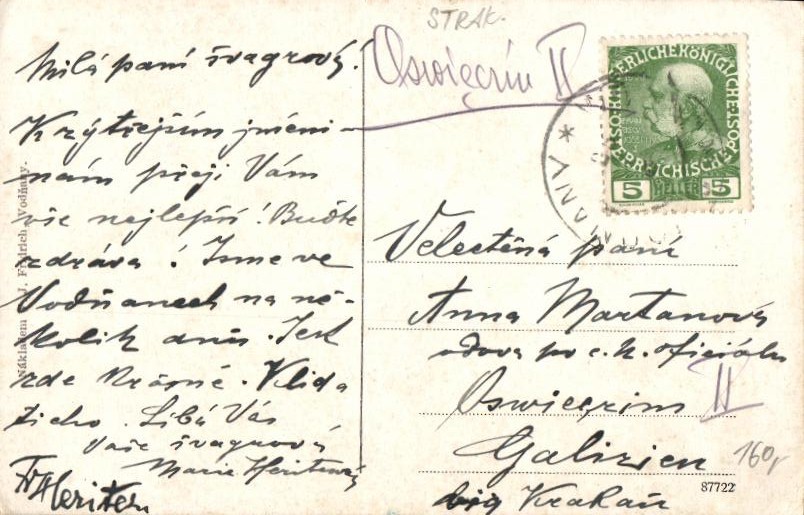 STRAK.
Oswięcim II
Milá paní švagrová!
K zýtřejším jmeni-
nám přeji Vám
vše nejlepší! Buďte
zdráva! Jsme ve
Vodňanech na ně-
kolik dnů. Jest
zde krásně. Klid a
ticho. Líbá Vás
Vaše švagrová
Marie Heritesová
FrHerites
Nákladem J. Fridrich, Vodňany.
KAISERLICHEKÖNIGLICHE
ÖSTERREICHISCHE POST
5 HELLER 5
VODŇANY *
Velectěná paní
Anna Martanová
vdova po c. k. oficiálu
Oswięcim II
Galizien
big Krakau
160,-
87722